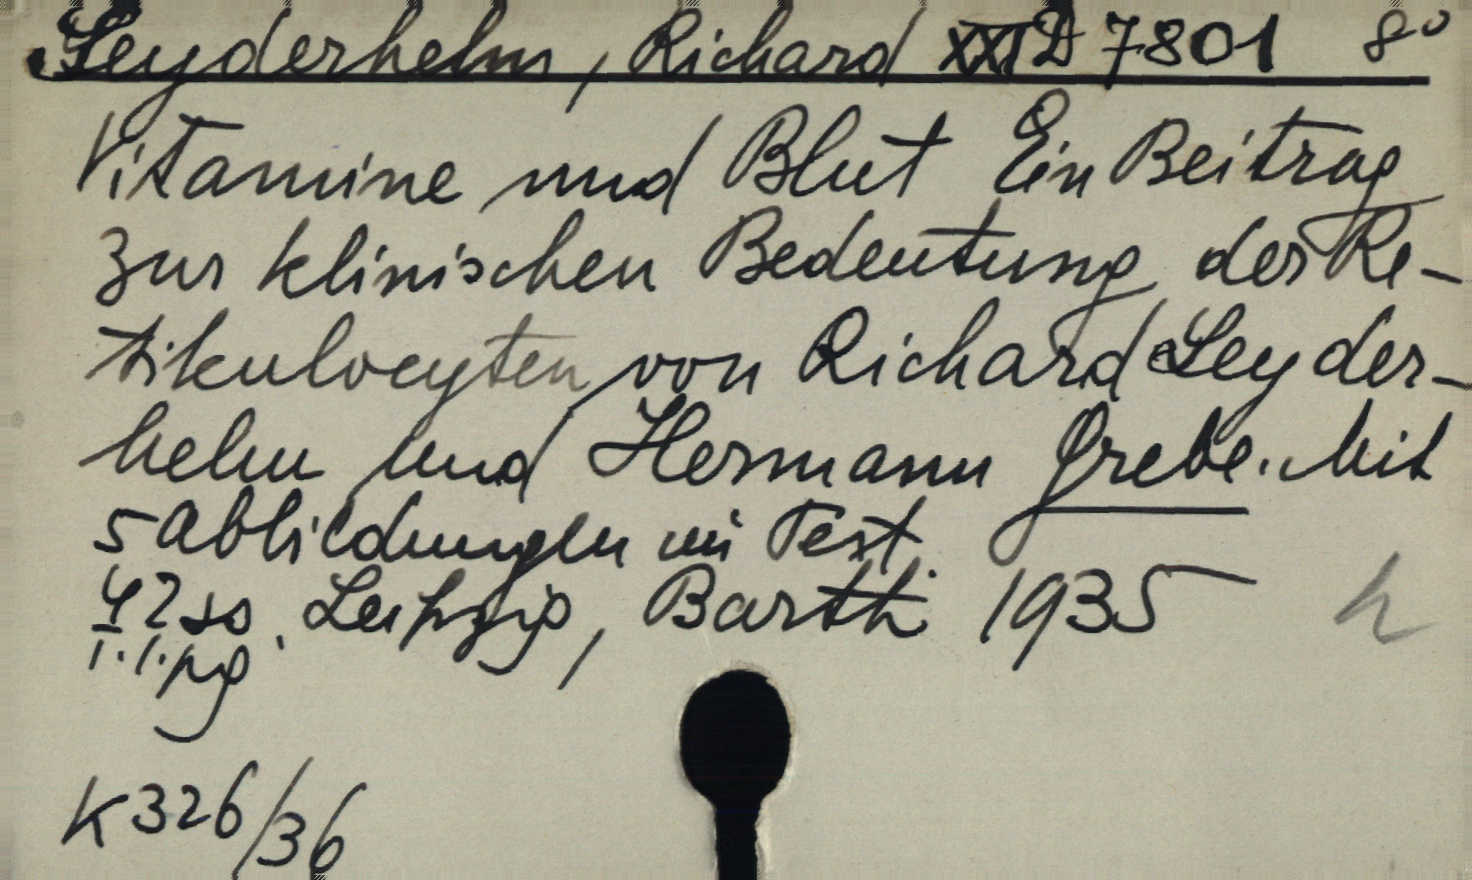 Seyderhelm, Richard XXI D 7801 8°
Vitamine und Blut Ein Beitrag
zur klinischen Bedeutung der Re-
tikulocyten von Richard Seyder-
helm und Hermann Grebe. Mit
5 Abbildungen im Text.
42 ss. Leipzig, Barth 1935 h
1.1.pg
K 326/36